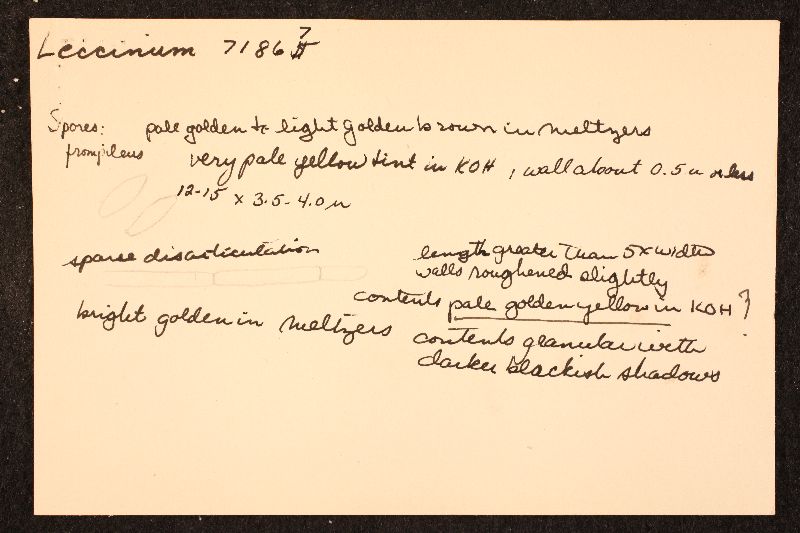 Leccinum 7186 7
Spores: pale golden to light golden brown in meltzers
from pileus very pale yellow tint in KOH, wall about 0.5 u or less
12-15 x 3.5-4.0 u
sparse disarticulation
length greater than 5x width
walls roughened slightly
contents pale golden yellow in KOH?
bright golden in meltzers
contents granular with
darker blackish shadows